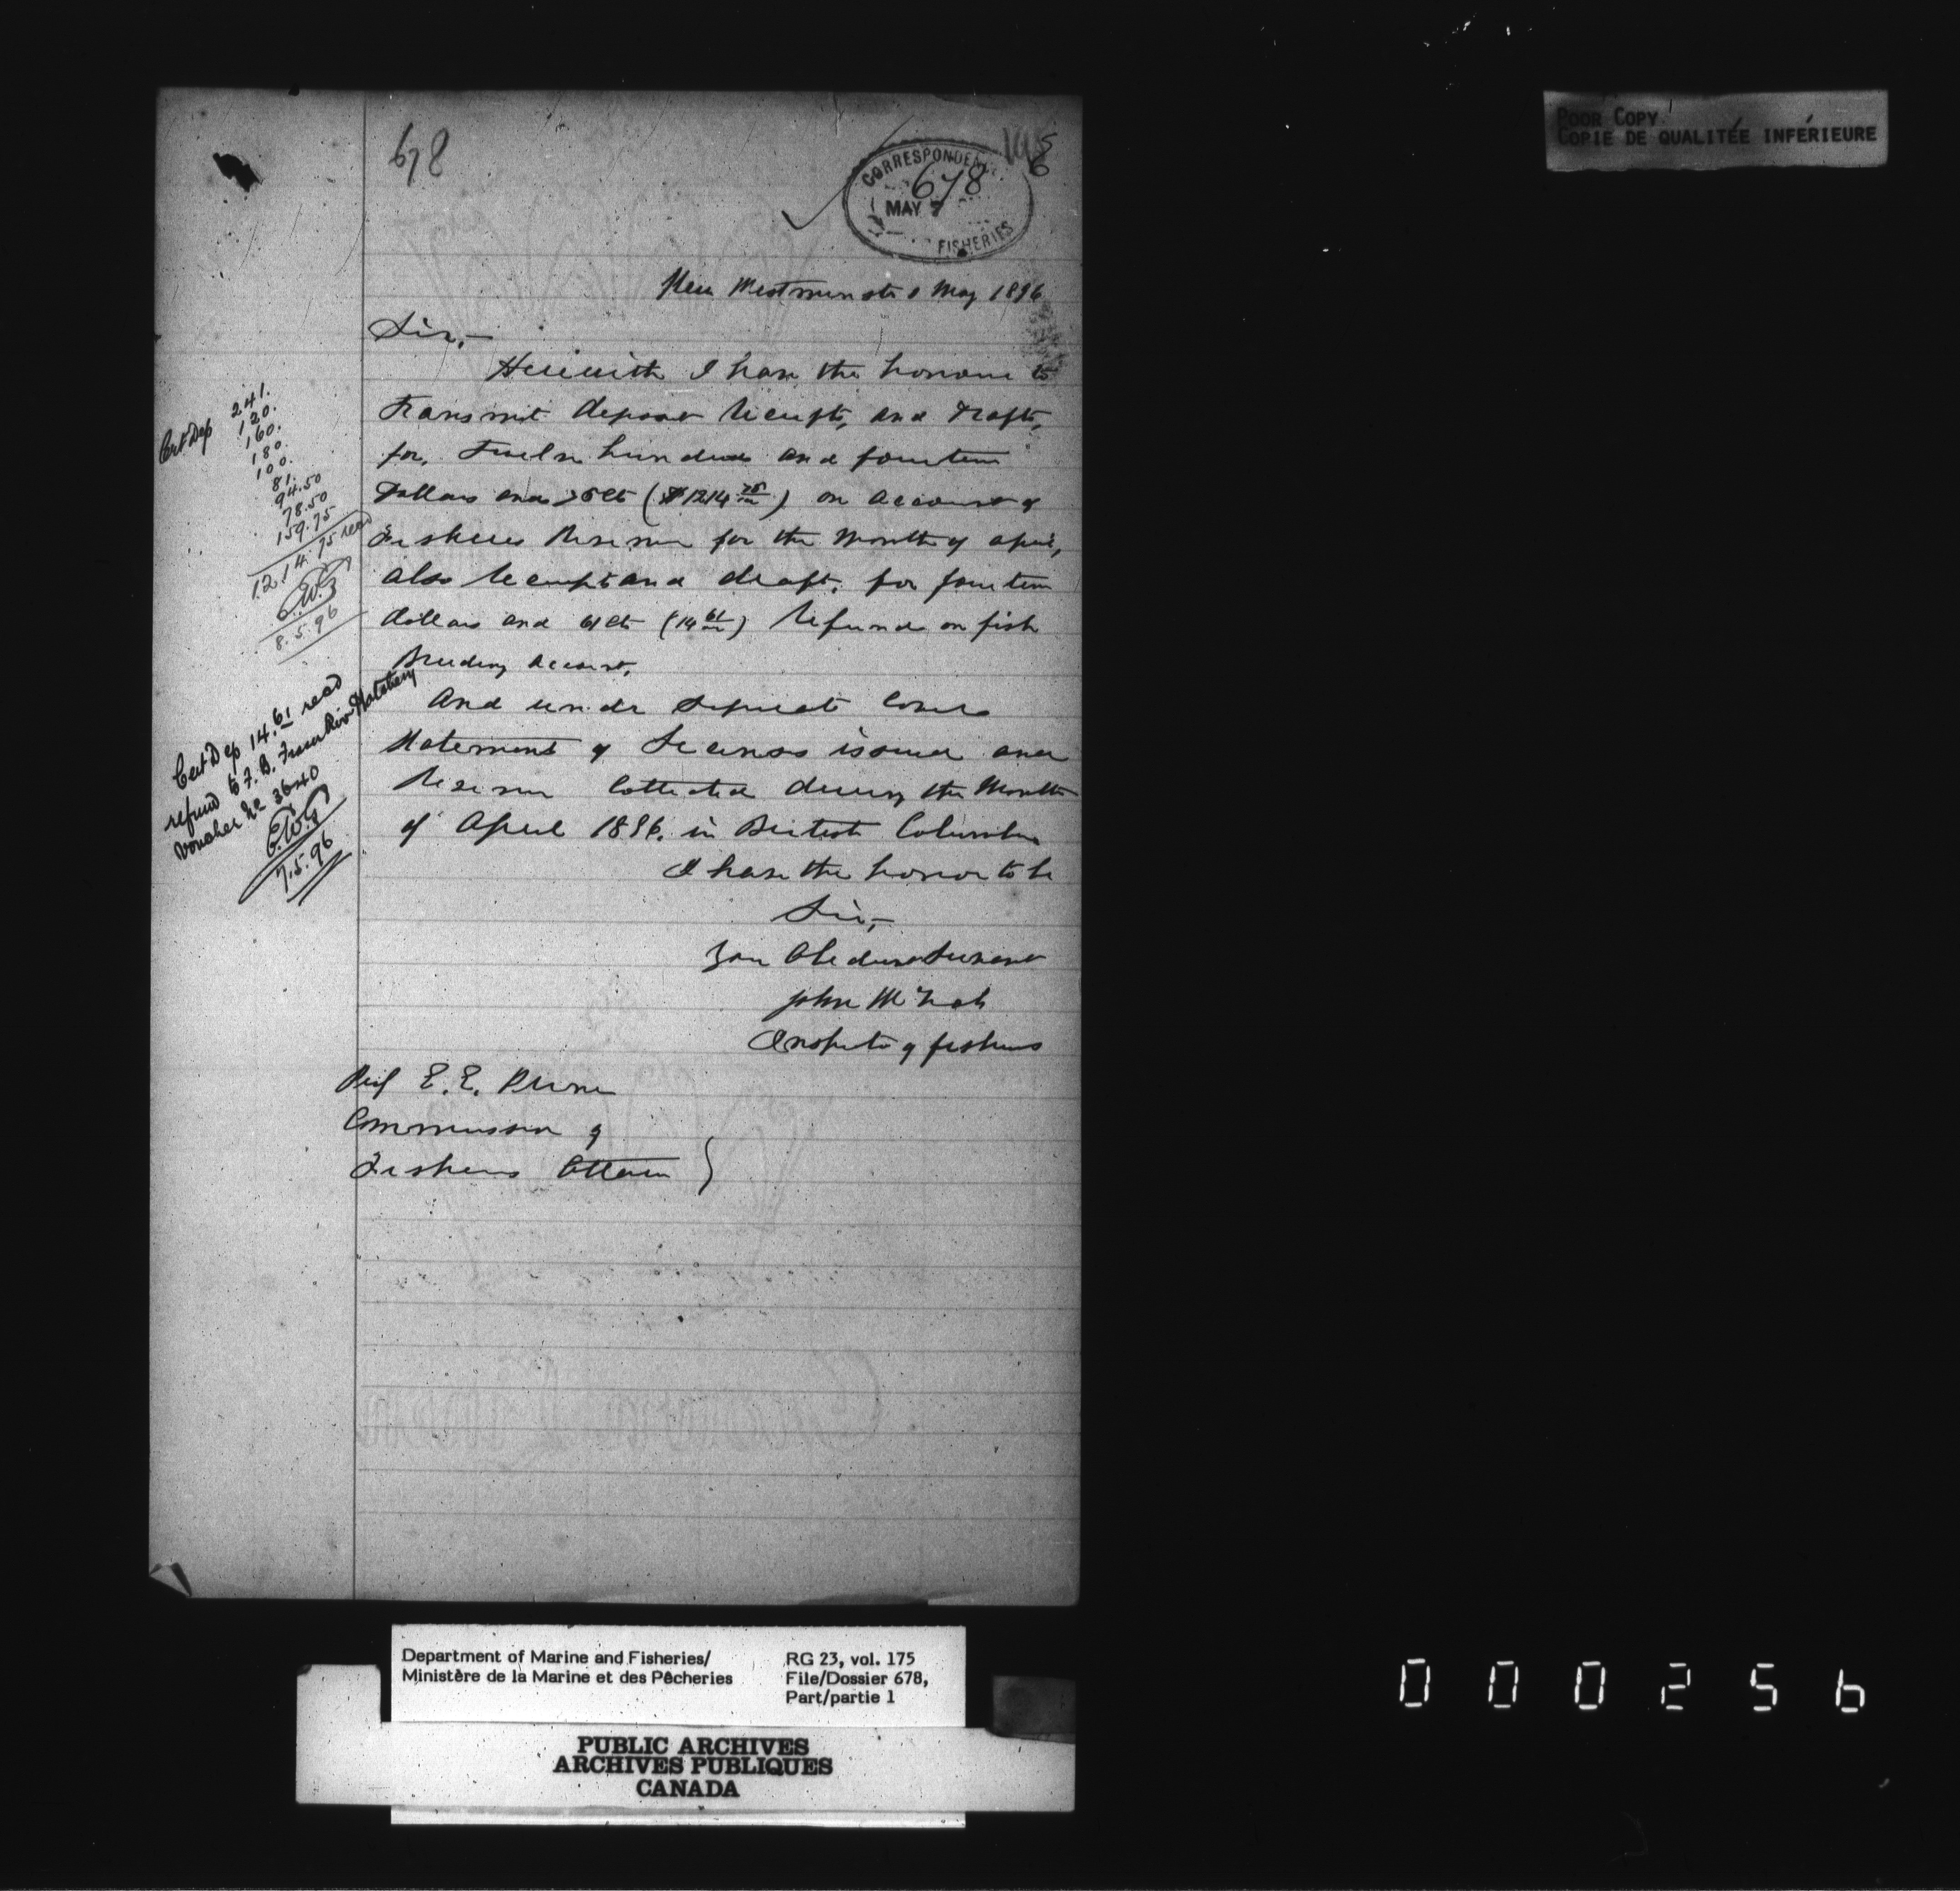 678
CORRESPONDENCE
678
MAY 7
FISHERIES
POOR COPY
COPIE DE QUALITÉE INFÉRIEURE
New Westminster May 1896
Sir,-
Herewith I have the honour to
Transmit deposit receipts, and drafts,
for, Twelve hundred and fourteen
Dollars and 75 cts ($1214 75/100) on account of
Fisheries Revenue for the month of April,
also receipt and draft, for fourteen
dollars and 61 cts (14 61/100) Refund on fish
Breeding Account,
And under seperate cover
Statement of Licenses issued and
Revenue Collected during the Month
of April 1896. in British Columbia
I have the honor to be
Sir,-
Your Obedient Servant
John McNab
Inspector of fisheries
Prof E. E. Prince
Commissioner of
Fisheries Ottawa
Cert Dep 241.
120.
160.
180.
100.
81.
94.50
78.50
159.75
1214.75 recd
8.5.96
Cert Dep 14.61 recd
refund to F. B. Fraser River Hatchery
Voucher No 3640
7.5.96
Department of Marine and Fisheries/
Ministère de la Marine et des Pêcheries
RG 23, vol. 175
File/Dossier 678,
Part/partie 1
PUBLIC ARCHIVES
ARCHIVES PUBLIQUES
CANADA
000256